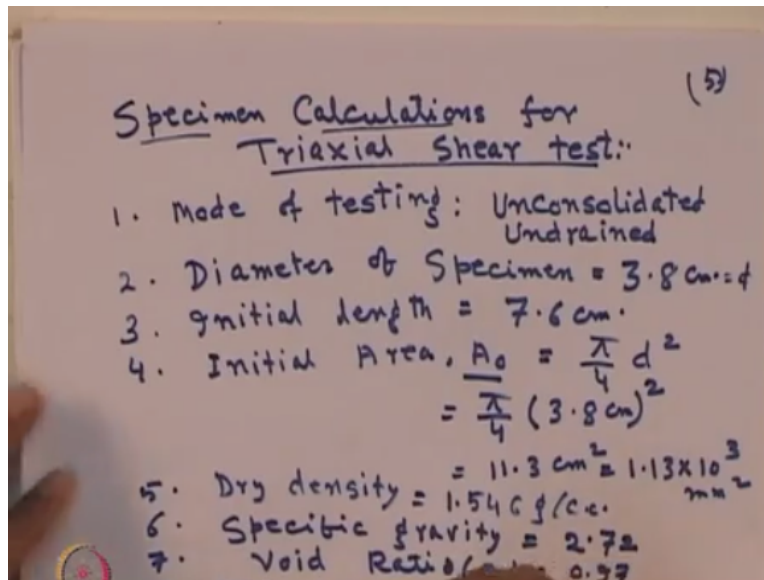 (5)
Specimen Calculations for
Triaxial Shear test:
1. Mode of testing: Unconsolidated
Undrained
2. Diameter of Specimen = 3.8 cm. = d
3. Initial length = 7.6 cm.
4. Initial Area, A₀ = π/4 d²
= π/4 (3.8 cm)²
= 11.3 cm² = 1.13×10³ mm²
5. Dry density = 1.546 g/cc.
6. Specific gravity = 2.72
7. Void Ratio